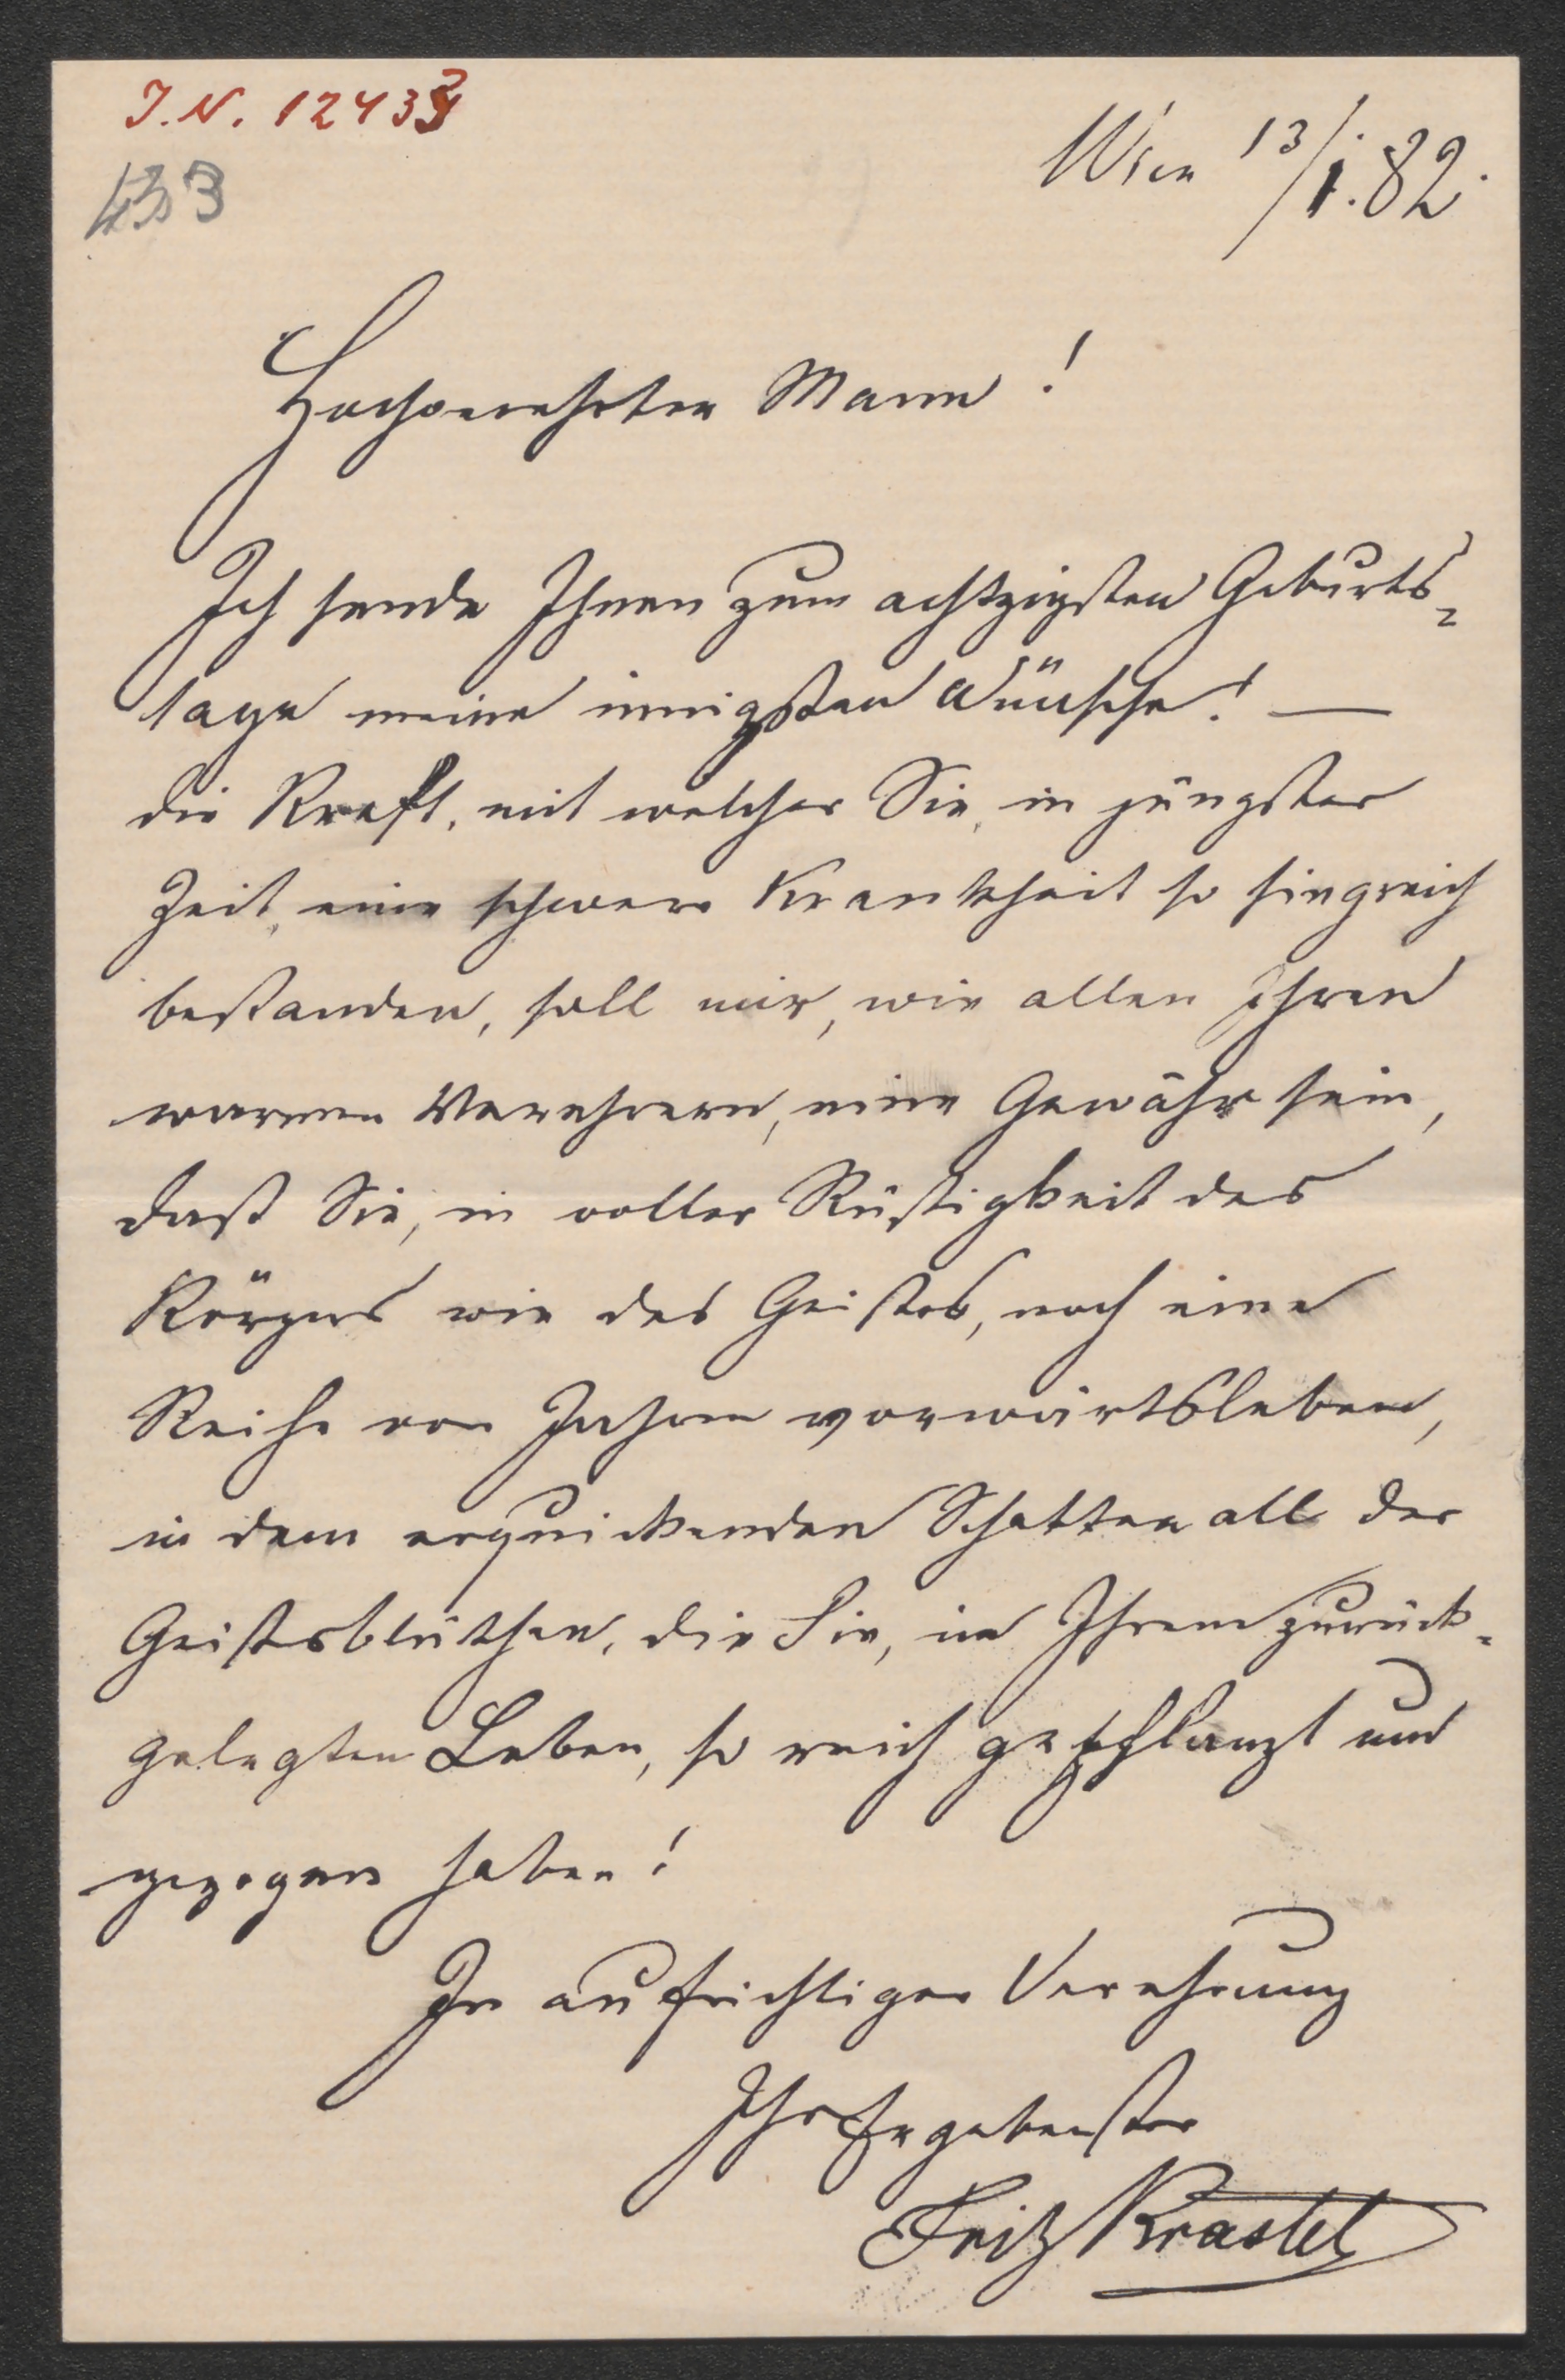 J.N. 12433
433
Wien 13/1. 82.
Hochverehrter Mann!
Ich sende Ihnen zum achtzigsten Geburts-
tage meine innigsten Wünsche! —
die Kraft, mit welcher Sie, in jüngster
Zeit, eine schwere Krankheit so siegreich
bestanden, soll mir, wie allen Ihren
warmen Verehrern, eine Gewähr sein,
daß Sie, in voller Rüstigkeit des
Körpers wie des Geistes, noch eine
Reihe von Jahren vorwärtsleben,
in dem erquickenden Schatten all der
Geistesblüthen, die Sie, in Ihrem zurück-
gelegten Leben, so reich gepflanzt und
gezogen haben!
In aufrichtiger Verehrung
Ihr Ergebenster
Fritz Krastel